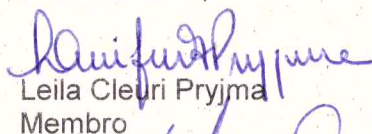 Leila Cleuri Pryjma
Membro